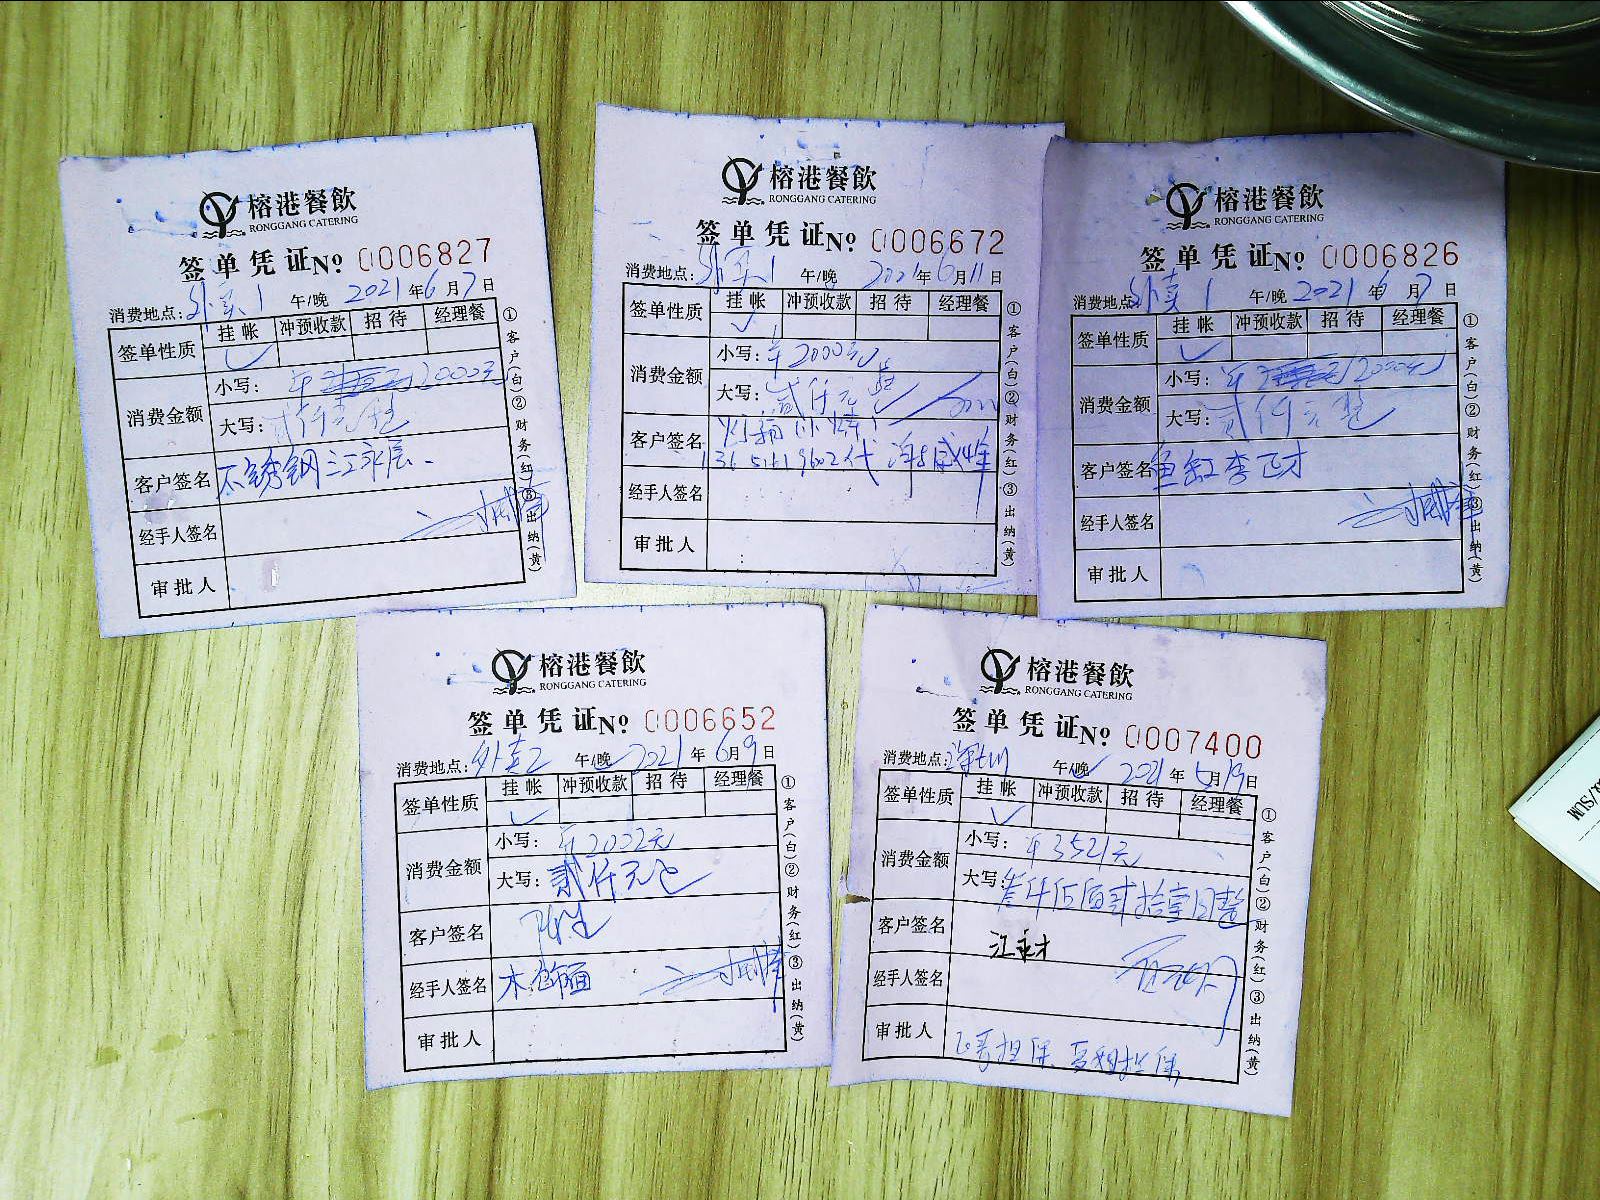 榕港餐飲
RONGGANG CATERING
签单凭证 No 0006827
消费地点: 外卖1 午/晚 2021年6月7日
签单性质 挂帐 冲预收款 招待 经理餐
✓
消费金额 小写: ¥ 2000元
大写: 贰仟元整
客户签名 不锈钢江永辰
经手人签名
审批人
①客户(白)②财务(红)③出纳(黄)
榕港餐飲
RONGGANG CATERING
签单凭证 No 0006672
消费地点: 外卖1 午/晚 2021年6月11日
签单性质 挂帐 冲预收款 招待 经理餐
✓
消费金额 小写: ¥2000元
大写: 贰仟元整
客户签名
经手人签名
审批人
①客户(白)②财务(红)③出纳(黄)
榕港餐飲
RONGGANG CATERING
签单凭证 No 0006826
消费地点: 外卖1 午/晚 2021年6月7日
签单性质 挂帐 冲预收款 招待 经理餐
✓
消费金额 小写: ¥ 2000元
大写: 贰仟元整
客户签名 鱼缸李正才
经手人签名
审批人
①客户(白)②财务(红)③出纳(黄)
榕港餐飲
RONGGANG CATERING
签单凭证 No 0006652
消费地点: 外卖2 午/晚 2021年6月9日
签单性质 挂帐 冲预收款 招待 经理餐
✓
消费金额 小写: ¥2002元
大写: 贰仟元
客户签名
经手人签名 木饰面
审批人
①客户(白)②财务(红)③出纳(黄)
榕港餐飲
RONGGANG CATERING
签单凭证 No 0007400
消费地点: 深圳 午/晚 2021年5月19日
签单性质 挂帐 冲预收款 招待 经理餐
✓
消费金额 小写: ¥3521元
大写: 叁仟伍佰贰拾壹圆整
客户签名 江永才
经手人签名
审批人 担保 担保
①客户(白)②财务(红)③出纳(黄)
/SUM